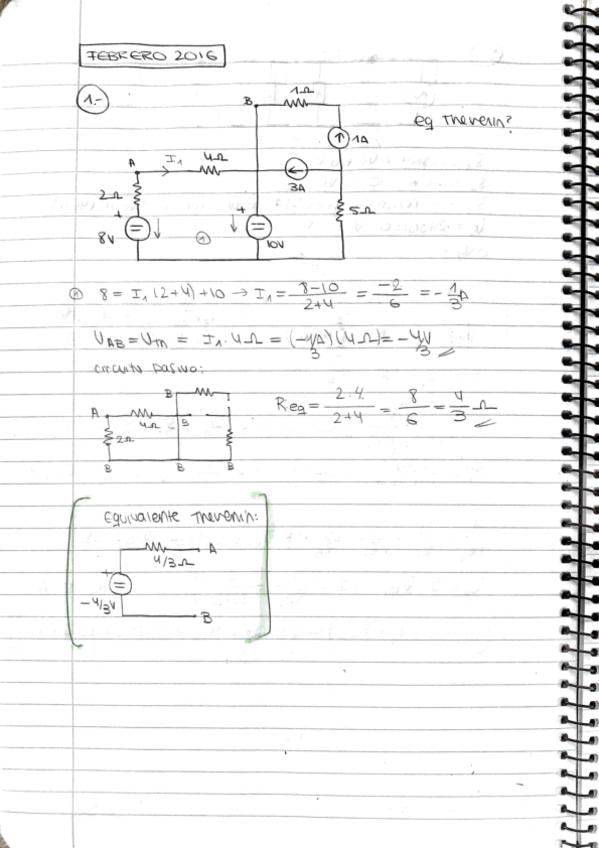 FEBRERO 2016
1.-
B 1Ω
eq Thevenin?
1A
A I₁ 4Ω
3A
2Ω
5Ω
+ +
8V 1 10V
① 8 = I₁ (2+4) +10 → I₁ = 8-10 / 2+4 = -2 / 6 = - 1/3 A
U_AB = U_Th = I₁ · 4Ω = (-1/3 A) (4Ω) = -4/3 V
circuito pasivo:
B
A 4Ω B
2Ω
B B B
Req = 2·4 / 2+4 = 8/6 = 4/3 Ω
Equivalente Thevenin:
4/3Ω A
+
-4/3V
B